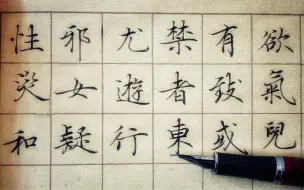 性邪尤禁有欲
女遊者致氣
和疑行東或兒